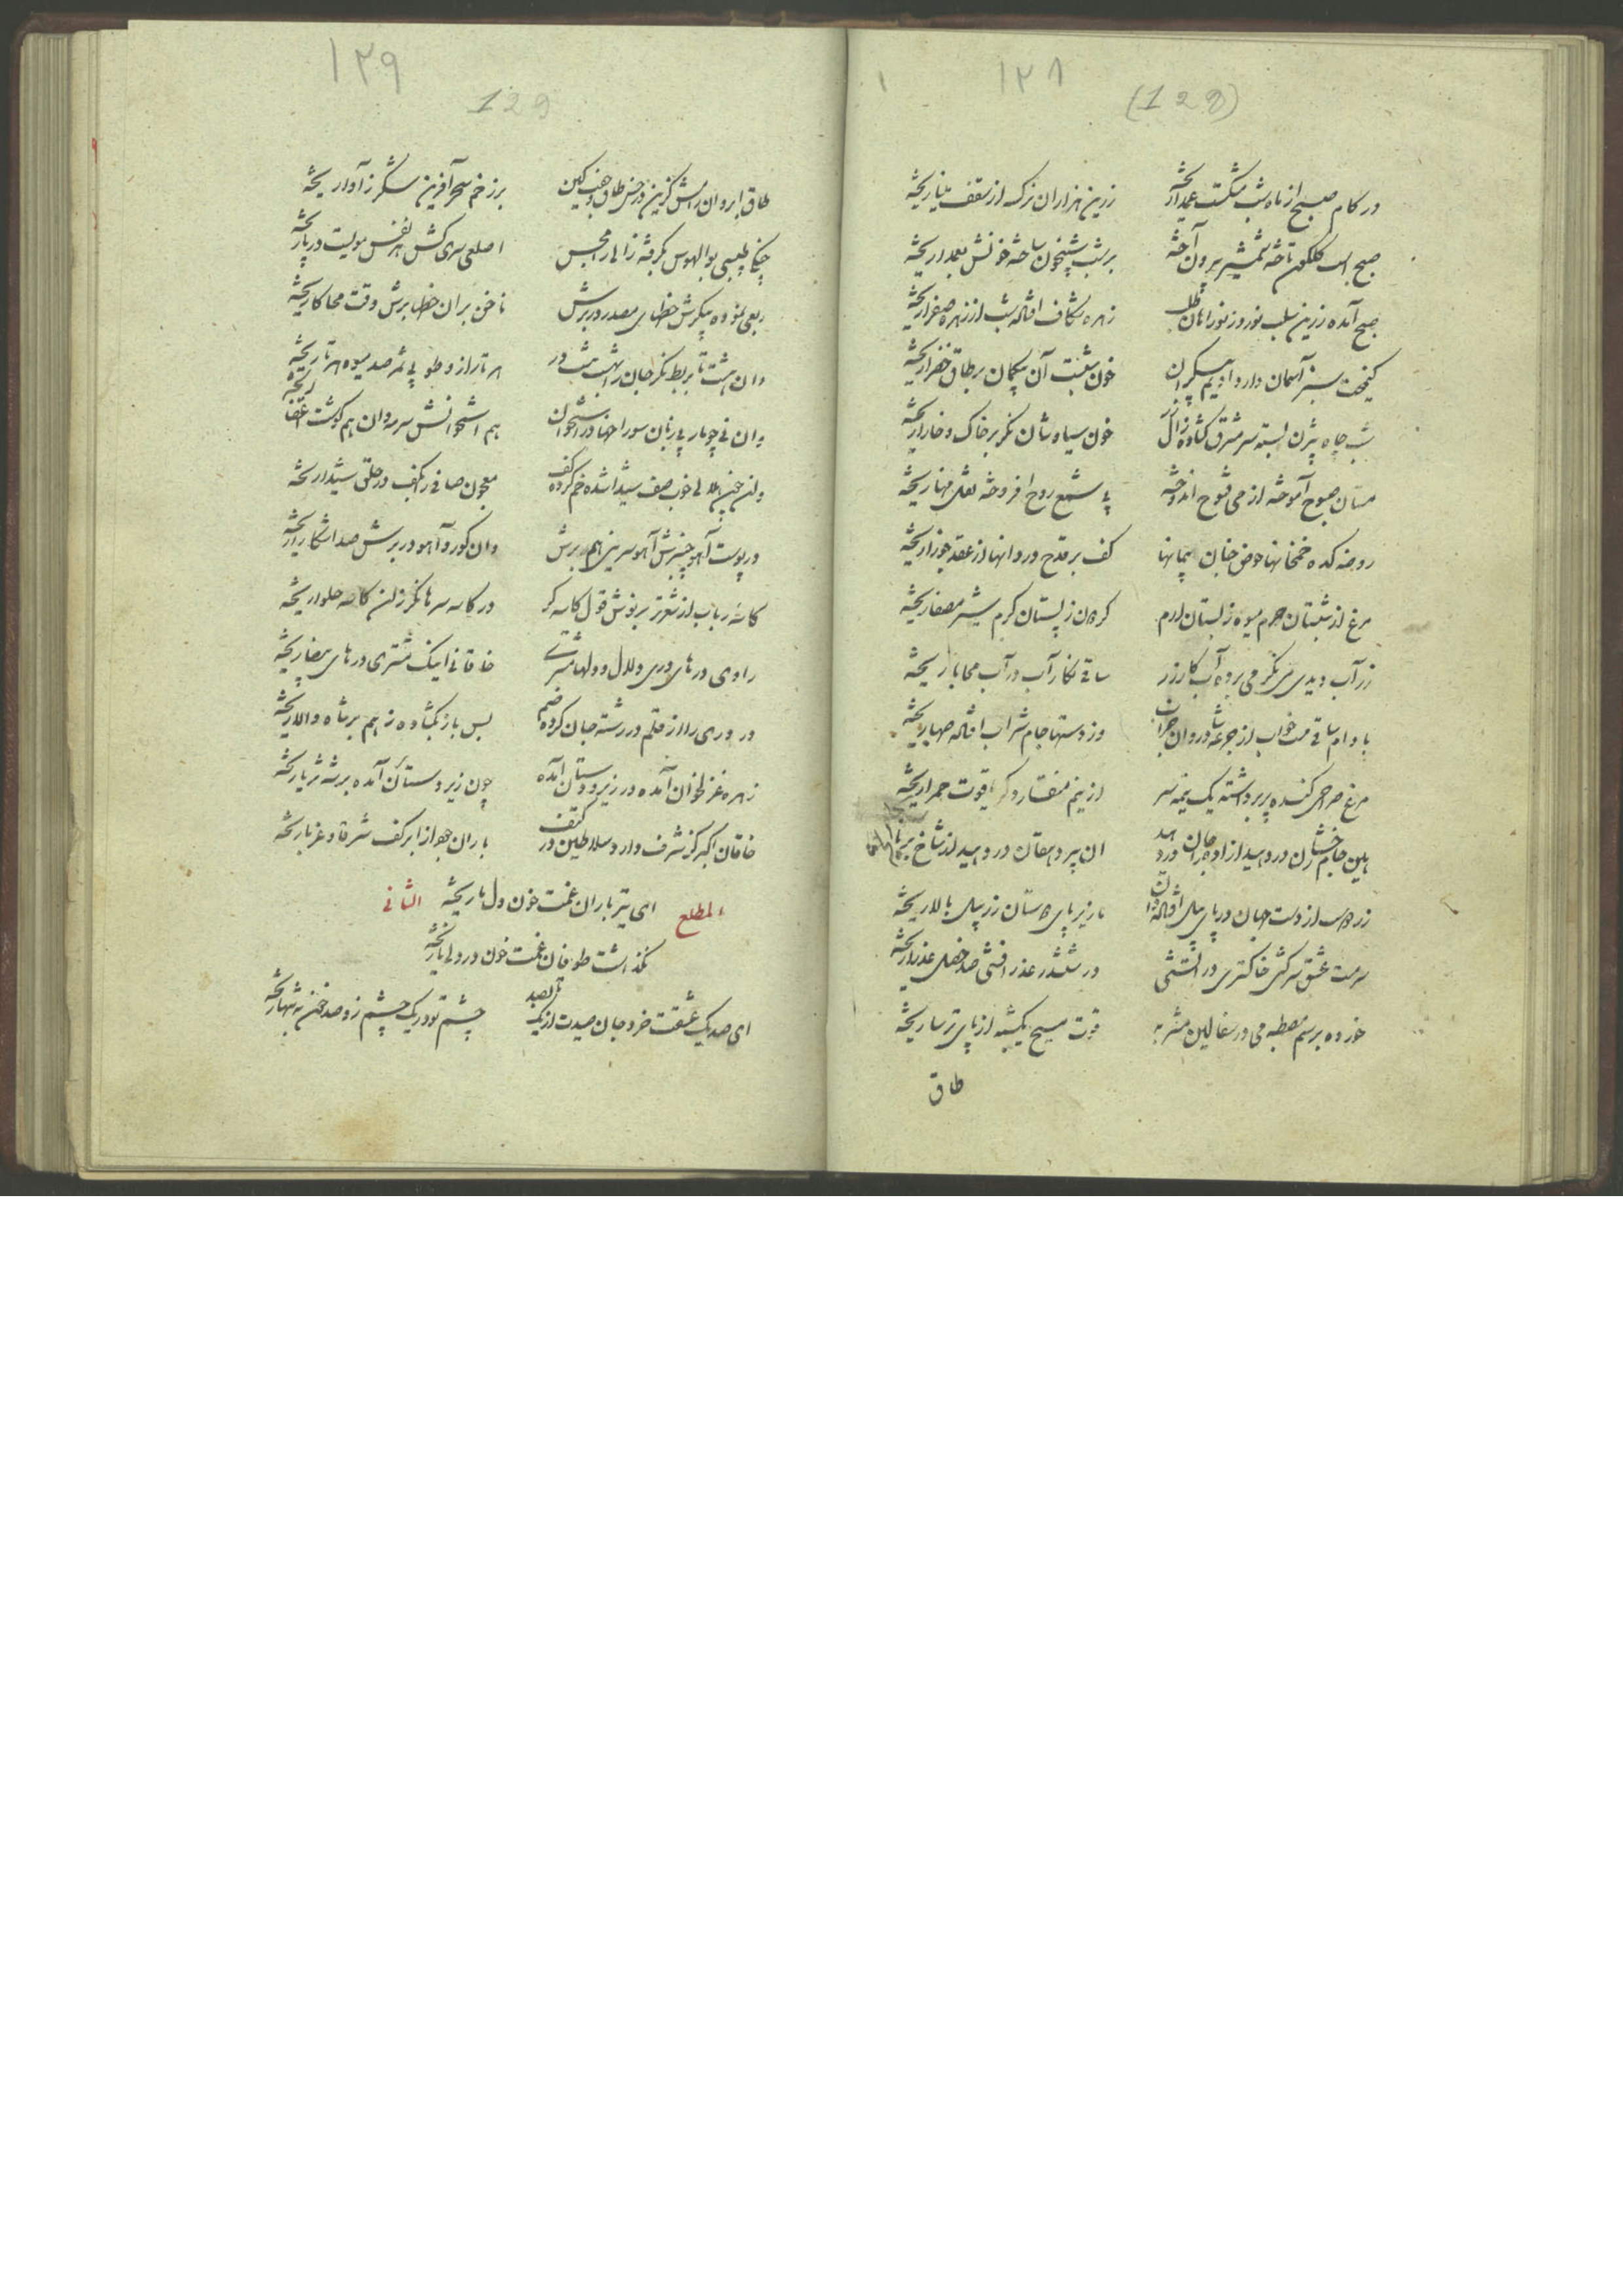 ۱۲۸
(128)
در کام صبح از ناف شب مشکست عمدا ریخته زرین هزاران نرگسه از سقف مینا ریخته
صبح است گلگون تاخته شمشیر بیرون آخته بر شب شبیخون ساخته خونش بعمدا ریخته
صبح آمده زرین سلب نوروز نوراهان طلب زهره شکاف افتاده شب از زهره صفرا ریخته
کیمخت سبز آسمان دارد ادیم بیکران خون شبست آن بیگمان بر طاق خضرا ریخته
شب چاه بیژن بسته سر مشرق گشاده زال زر خون سیاوشان نگر بر خاک و خارا ریخته
مستان صبوح آموخته از می فتوح اندوخته می شمع روح افروخته نقل مهنا ریخته
روضه کده خمخانها حوض جنان پیمانها کف بر قدح دردانها از عقد جوزا ریخته
مرغ از شبستان حرم میوه ز بستان ارم کرده ز پستان کرم شیر مصفا ریخته
زر آب دیدی می نگر می برده آب کار زر ساقی بکار آب در آب محابا ریخته
بادام ساقی مست خواب از جرعه شادروان خراب وز دستها جام شراب افتاده صهبا ریخته
مرغ صراحی کنده پر برداشته یک نیمه سر از نیم منقار دگر یاقوت حمرا ریخته
زر داده است از دست جهان در پای پیل افتاده دان تا زیر پای دوستان زر پیل بالا ریخته
سرمست عشق سرکشی خاکستری در آتشی در ششدر عذرا فشی صد خصل عذرا ریخته
خورده برسم مصطبه می در سفالین مشربه قوت مسیح یکشبه از پای ترسا ریخته
طاق
۱۲۹
129
طاق ابروان رامش گزین در حسن طاق و جفت کین بر زخمه سحر آفرین شکر ز آوا ریخته
چنگی طبیبی بوالهوس بگرفته زالی را مجس اصلع سری کش هر نفس مویست در پا ریخته
ربعی نموده پیکرش خطهای مسطر در برش ناخن بران خطها برش وقت محاکا ریخته
وان هشت تا بربط نگر جان را بهشت هشت در هر تار ازو طوبی ثمر صد میوه هر تا ریخته
وان نی چو مار بی زبان سوراخها در استخوان هم استخوانش سرمه دان هم گوشت ز اعضا ریخته
در پوست آهو چنبرش آهو سرینی همبرش وان گور و آهو در برش صید آشکارا ریخته
کاسه رباب از شعر تر بر نوش قول کاسه گر در کاسه سرها نگر زان کاسه حلوا ریخته
راوی ز درهای دری دلال و دلها مشتری خاقانی اینک مشتری درهای بیضا ریخته
در دری را از قلم در رشته جان کرده ضم پس باز بگشاده ز هم بر شاه والا ریخته
زهره غزلخوان آمده در زیر و دستان آمده چون زیر دستان آمده بر شه ثریا ریخته
خاقان اکبر کز شرف دارد سلاطین در کنف باران جود از ابر کف شرقا و غربا ریخته
المطلع الثانی
ای تیر باران غمت خون دل ما ریخته
نگذاشت طوفان غمت خون در دلی ناریخته
ای صد یک عشقت خرد جان صیدت از یک تا بصد چشم تو در یک چشم زد صد خون به تنها ریخته